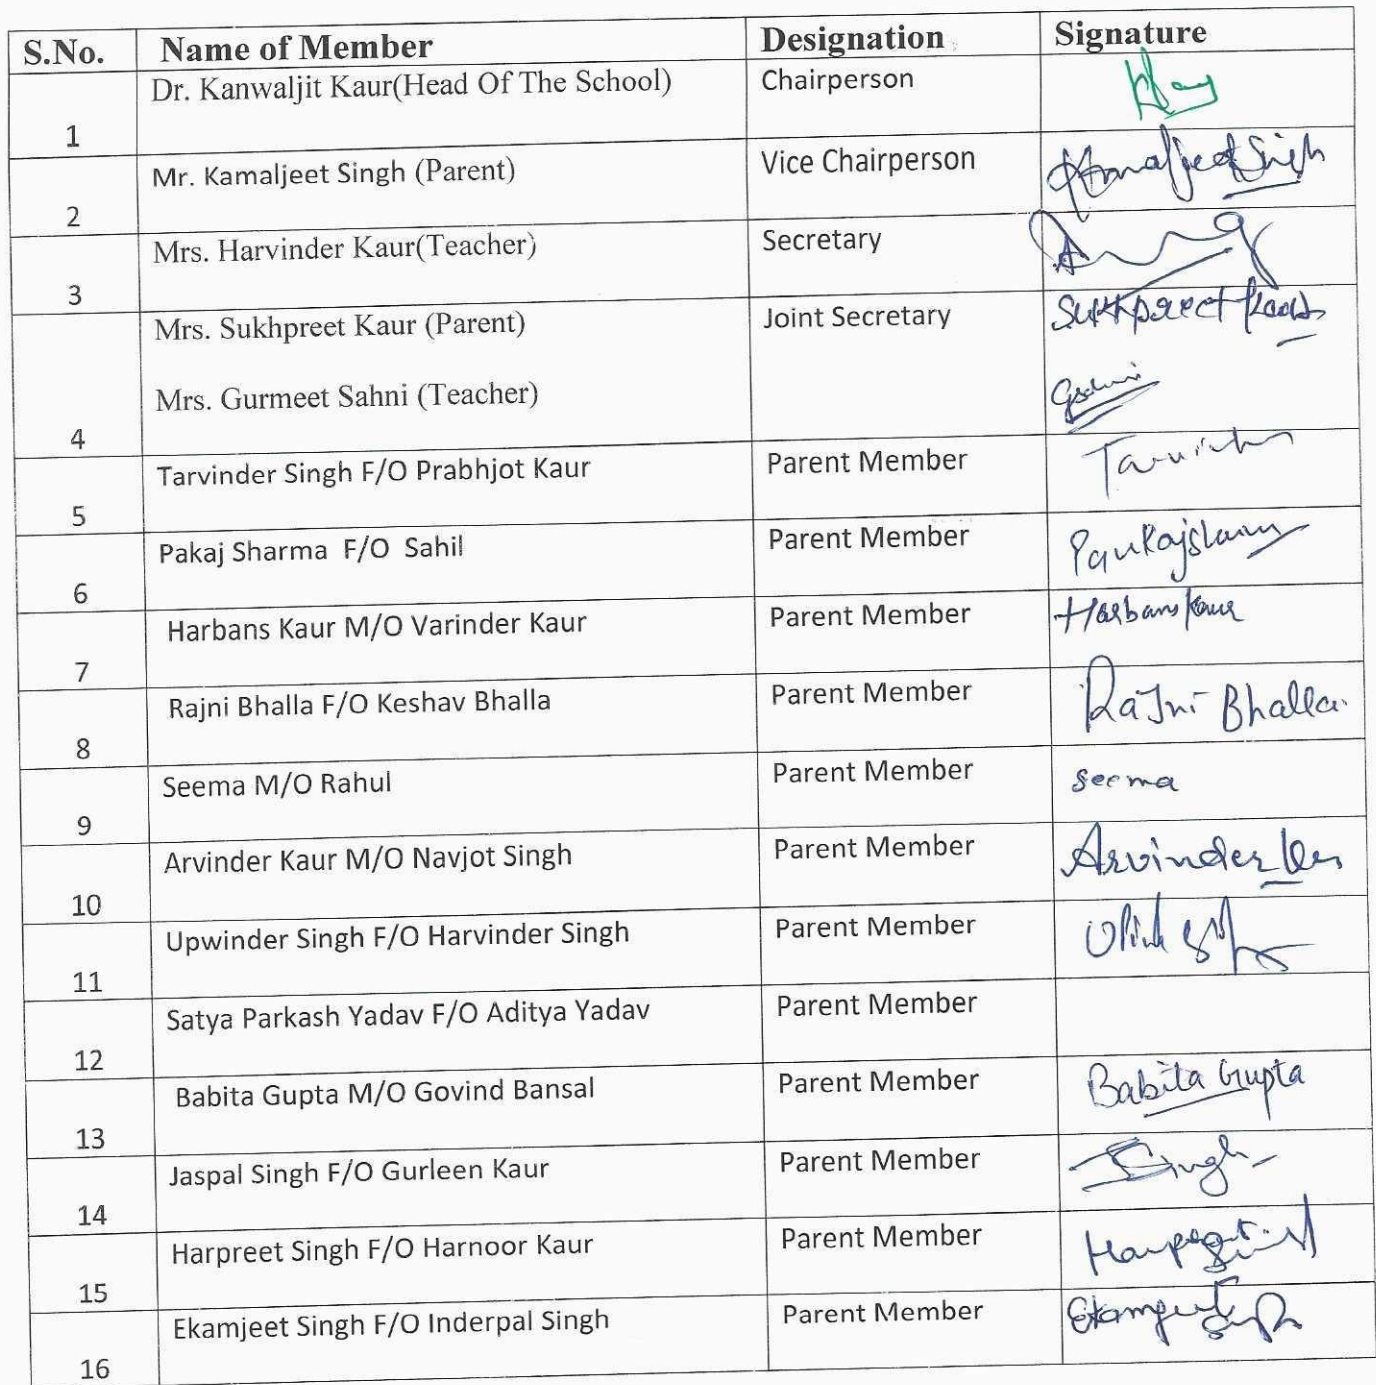 S.No. Name of Member Designation Signature
1 Dr. Kanwaljit Kaur(Head Of The School) Chairperson
2 Mr. Kamaljeet Singh (Parent) Vice Chairperson Kamaljeet Singh
3 Mrs. Harvinder Kaur(Teacher) Secretary
4 Mrs. Sukhpreet Kaur (Parent) Joint Secretary Sukhpreet Kaur
Mrs. Gurmeet Sahni (Teacher) Gsahni
5 Tarvinder Singh F/O Prabhjot Kaur Parent Member
6 Pakaj Sharma F/O Sahil Parent Member
7 Harbans Kaur M/O Varinder Kaur Parent Member Harbans Kaur
8 Rajni Bhalla F/O Keshav Bhalla Parent Member RaJni Bhalla
9 Seema M/O Rahul Parent Member Seema
10 Arvinder Kaur M/O Navjot Singh Parent Member Arvinder
11 Upwinder Singh F/O Harvinder Singh Parent Member
12 Satya Parkash Yadav F/O Aditya Yadav Parent Member
13 Babita Gupta M/O Govind Bansal Parent Member Babita Gupta
14 Jaspal Singh F/O Gurleen Kaur Parent Member Singh
15 Harpreet Singh F/O Harnoor Kaur Parent Member
16 Ekamjeet Singh F/O Inderpal Singh Parent Member